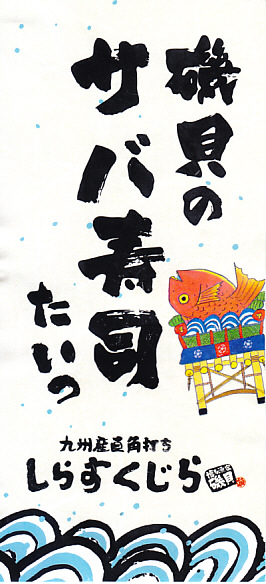 磯貝の
サバ寿司
たいっ
九州産直角打ち
しらすくじら
磯貝